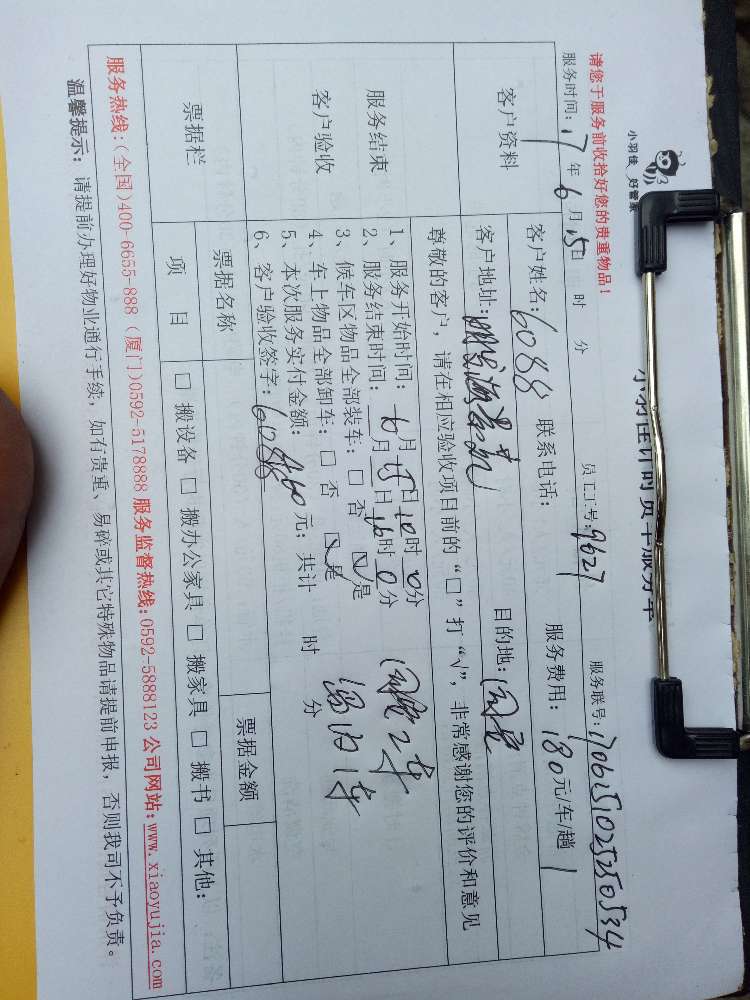 小羽佳 好管家
请您于服务前收拾好您的贵重物品!
员工工号:9627
服务联号:1706151025250534
服务时间:17年6月15日 时 分
客户资料
客户姓名:6088 联系电话:
服务费用:180元/车/趟
客户地址:
目的地:同安
尊敬的客户,请在相应验收项目前的“□”打“√”,非常感谢您的评价和意见
服务结束
客户验收
1、服务开始时间:6月15日10时0分
2、服务结束时间: 月15日16时0分
3、候车区物品全部装车:□ 否 ☑ 是
4、车上物品全部卸车:□ 否 ☑ 是
5、本次服务实付金额: 元;共计 时 分
6、客户验收签字:6088
同安2车
岛内1车
票据栏
票据名称
票据金额
项 目
□ 搬设备 □ 搬办公家具 □ 搬家具 □ 搬书 □ 其他:
服务热线:(全国)400-6655-888 (厦门)0592-5178888 服务监督热线:0592-5888123 公司网站:www.xiaoyujia.com
温馨提示:请提前办理好物业通行手续,如有贵重、易碎或其它特殊物品请提前申报,否则我司不予负责。